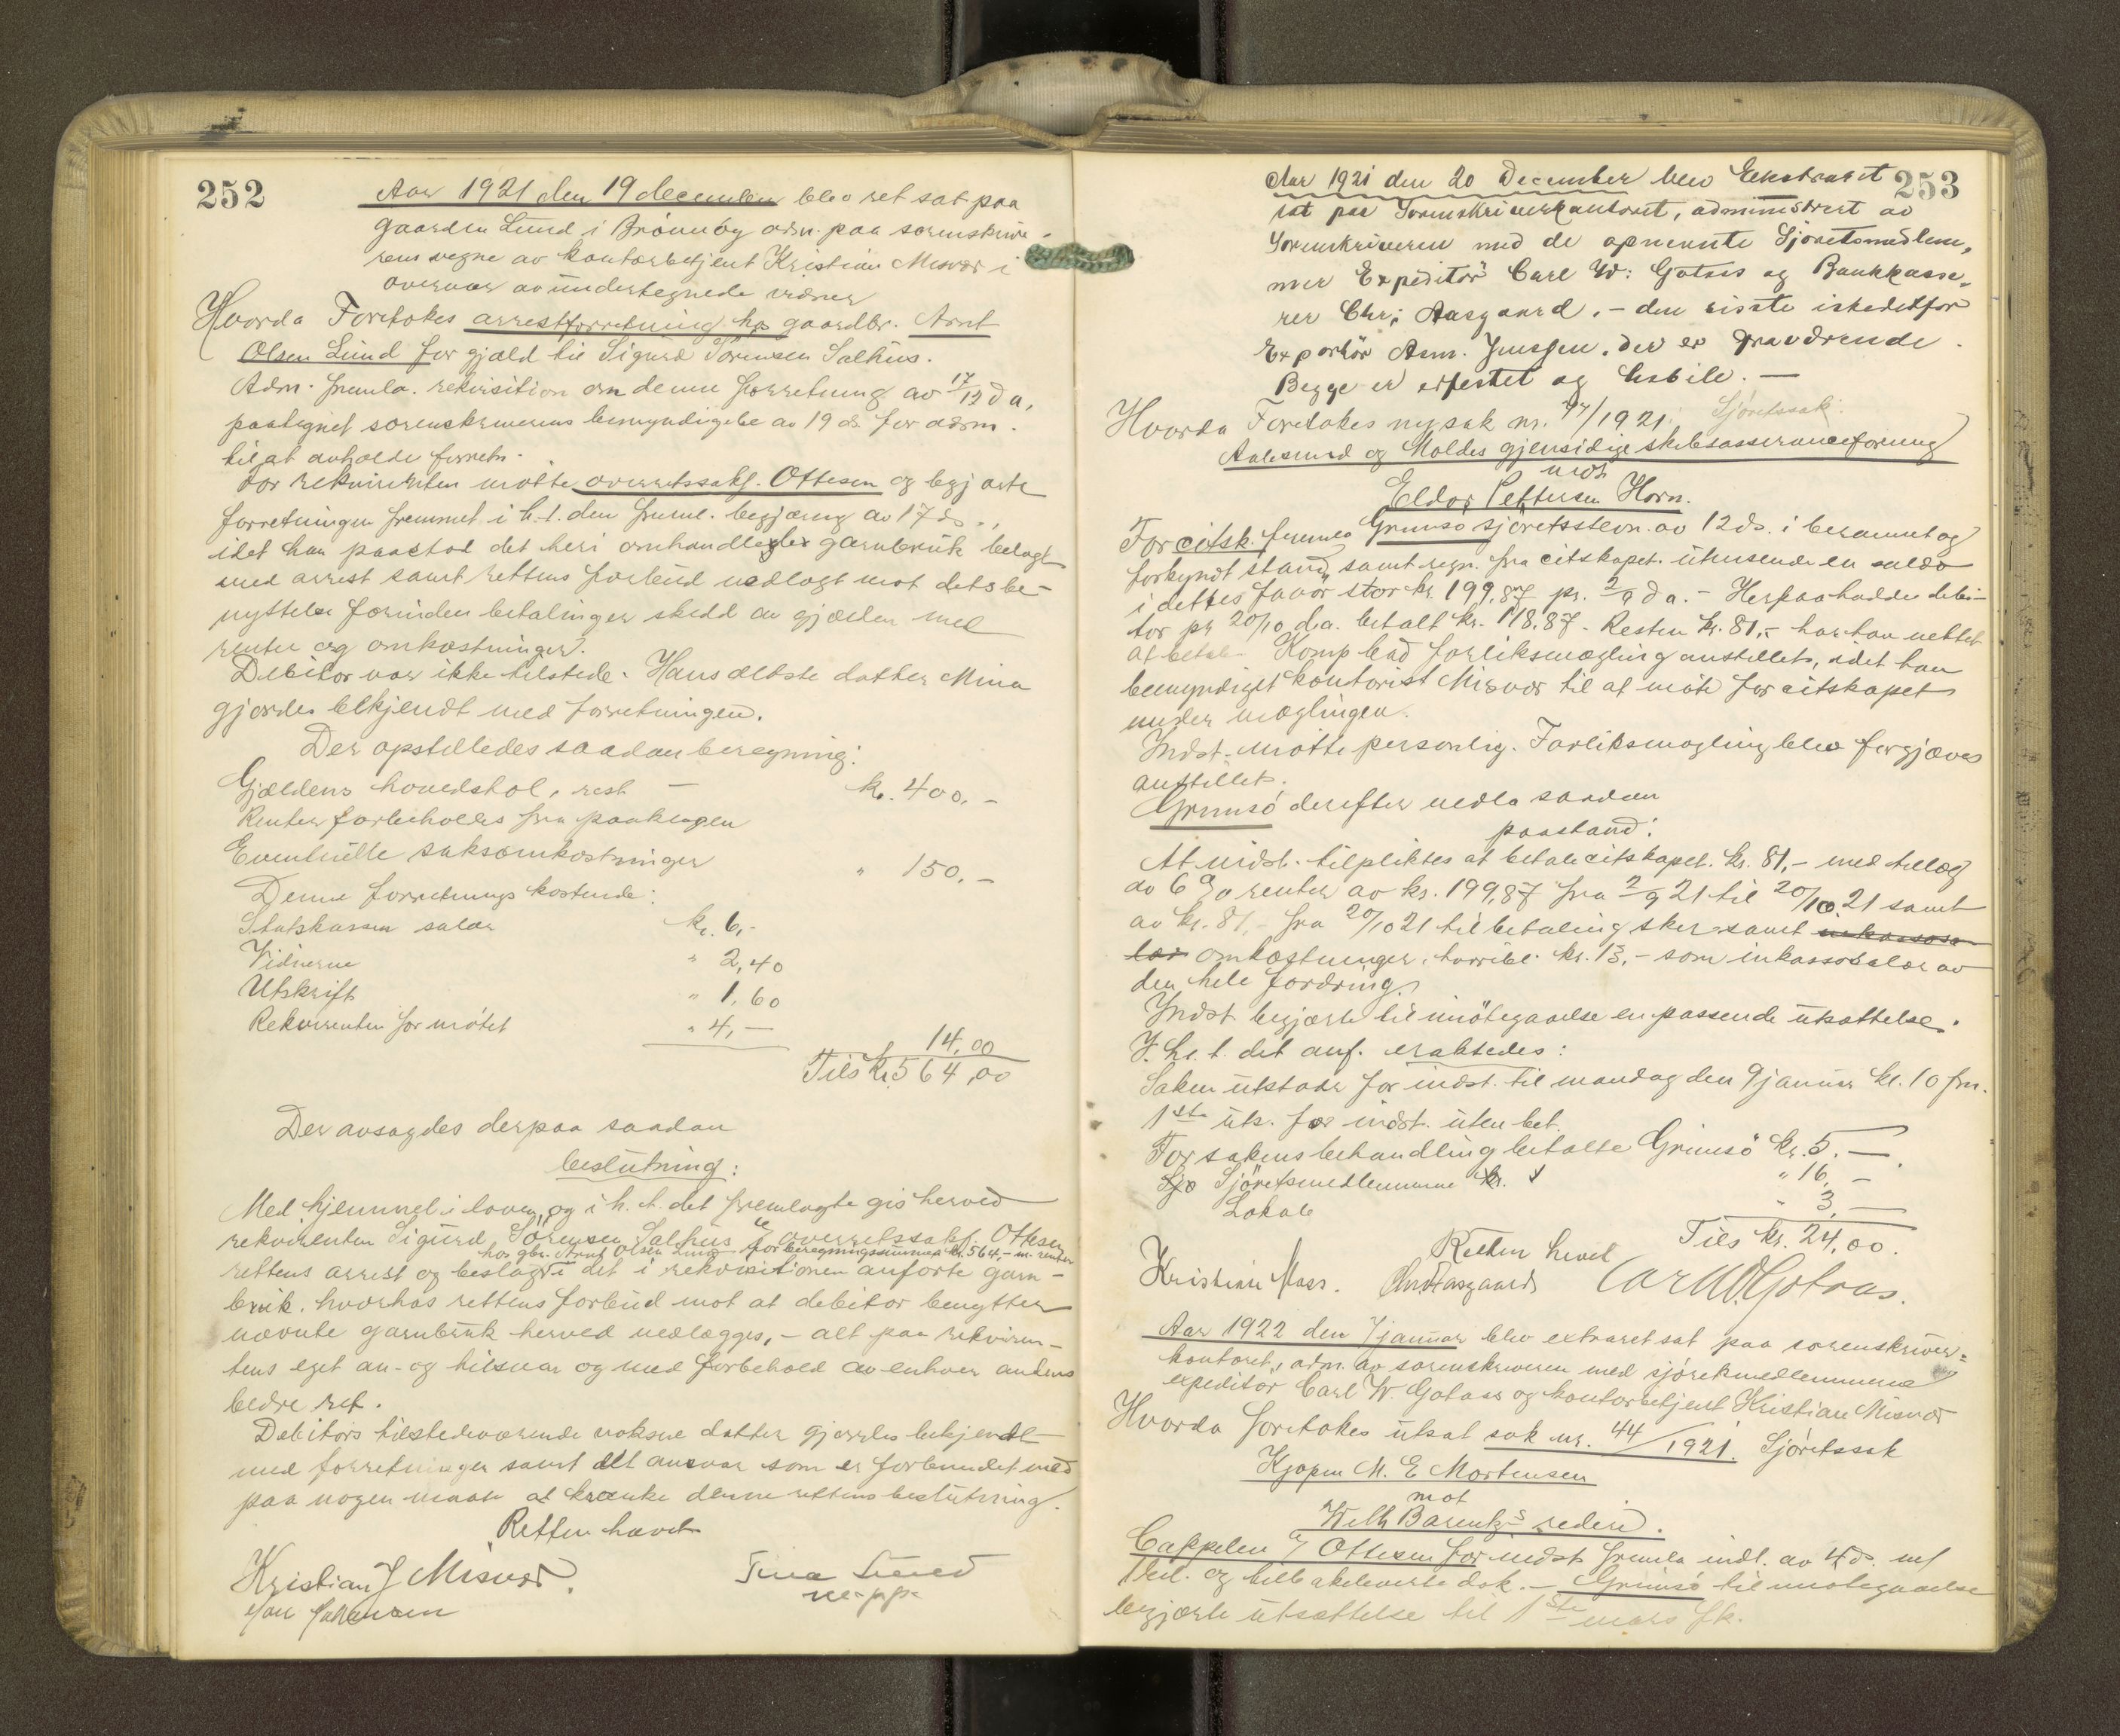 252
Aar 1921 den 19 december blev ret sat paa
gaarden Lund i Brønnøy adm. paa sorenskrive-
rens vegne av kontorbetjent Kristian Misvær i
overvær av undertegnede vidner
Hvorda Foretokes arrestforretning hos gaardbr. Arnt
Olsen Lund for gjæld til Sigurd Sørensen Salhus.
Adm. fremla. rekvisition om denne forretning av 17/12 d a,
paategnet sorenskriverens bemyndigelse av 19 ds for adm.
til at avholde forretn.
For rekvirenten møtte overretssakf. Ottesen og begjærte
forretningen fremmet i h.t. den freml. begjæring av 17 ds.,
idet han paastod det heri omhandledes garnbruk belagt
med arrest samt rettens forbud nedlagt mot dets be-
nyttelse forinden betalinger skedd av gjælden med
renter og omkostninger.
Debitor var ikke tilstede. Hans ældste datter Mina
gjordes bekjendt med forretningen.
Der opstilledes saadan beregning:
Gjældens hovedstol, rest — kr. 400.-
Renter forbeholdes fra paakragen
Eventuelle saksomkostninger " 150.-
Denne forretnings kostende:
Statskassen salær kr. 6,-
Vidnerne " 2,40
Utskrift " 1,60
Rekvirenten for møtet " 4,—
14,00
Tils kr. 564,00
Der avsagdes derpaa saadan
beslutning:
Med hjemmel i loven og i h. t. det fremlagte gis herved
rekvirenten Sigurd Sørensen Salhus v/ overretssakf. Ottesen
hos gbr. Arnt Olsen Lund for beregningssummen kr. 564,- m. renter
rettens arrest og beslag i det i rekvisitionen anførte garn-
bruk. hvorhos rettens forbud mot at debitor benytter
nævnte garnbruk herved nedlægges, - alt paa rekviren-
tens eget an- og tilsvar og med forbehold av enhver andens
bedre ret.
Debitors tilstedeværende voksne datter gjordes bekjendt
med forretningen samt det ansvar som er forbundet med
paa nogen maate at krænke denne rettens beslutning.
Retten hævet
Kristian J Misvær. Tina Lund
m. p. p.
Johansen
253
Aar 1921 den 20 December blev Ekstraret
sat paa Sorenskriverkontoret, administrert av
Sorenskriveren med de opnævnte Sjøretsmedlem,
mer Expeditør Carl W: Gotaas og Bankkasse,
rer Chr: Aasgaard, - den sisste istedetfor
Exportør Asm. Jenssen, der er fraværende.
Begge er edfestet og habile. —
Hvorda Foretokes ny sak nr. 47/1921. Sjøretssak.
Aalesund og Moldes gjensidige skibsasseranceforening
mot
Eldor Pettersen Horn.
For citsk. fremla Grimsø sjøretsstevn. av 12 ds. i berammet og
forkyndt stand, samt regn. fra citskapet. utvisende en saldo
i dettes favør stor kr. 199,87 pr. 2/9 d a. - Herpaa hadde debi-
tor pr 20/10 d.a. betalt kr. 118,87. Resten kr. 81,- har han nektet
at betale. Komp bad forliksmægling anstillet, idet han
bemyndiget kontorist Misvær til at møte for citskapet
under mæglingen.
Indst. møtte personlig. Forliksmægling blev forgjæves
anstillet.
Grimsø derefter nedla saadan
paastand:
At indst. tilpliktes at betale citskapet. kr. 81,- med tillæg
av 6% renter av kr. 199,87 fra 2/9 21 til 20/10. 21 samt
av kr. 81,- fra 20/10 21 til betaling sker samt inkassosa-
lær omkostninger, hvoribl. kr. 13,- som inkassosalær av
den hele fordring.
Indst. begjærte til imøtegaaelse en passende utsættelse.
I h. t. det anf. eragtedes:
Saken utstaar for indst. til mandag den 9 januar kl. 10 fm.
1ste uts. for indst. uten bet.
For sakens behandling betalte Grimsø kr. 5.—
Sjø Sjøretsmedlemmene kr. " 16.—
Lokale " 3.—
Tils kr. 24,00.
Retten hævet
Kristian Moss. Chr Aasgaard Carl W. Gotaas.
Aar 1922 den 7 januar blev extraret sat paa sorenskriver=
kontoret, adm. av sorenskriveren med sjøretsmedlemmene
expeditør Carl W. Gotaas og kontorbetjent Kristian Misvær
Hvorda foretokes utsat sak nr. 44/1921. Sjøretssak
Kjøpm M. E Mortensen
mot
Wilh Barentz's rederi.
Cappelen v/ Ottesen for indst fremla indl. av 4 ds. m/
1 bil. og tilbakeleverte dok. - Grimsø til imøtegaaelse
begjærte utsættelse til 1ste mars fk.